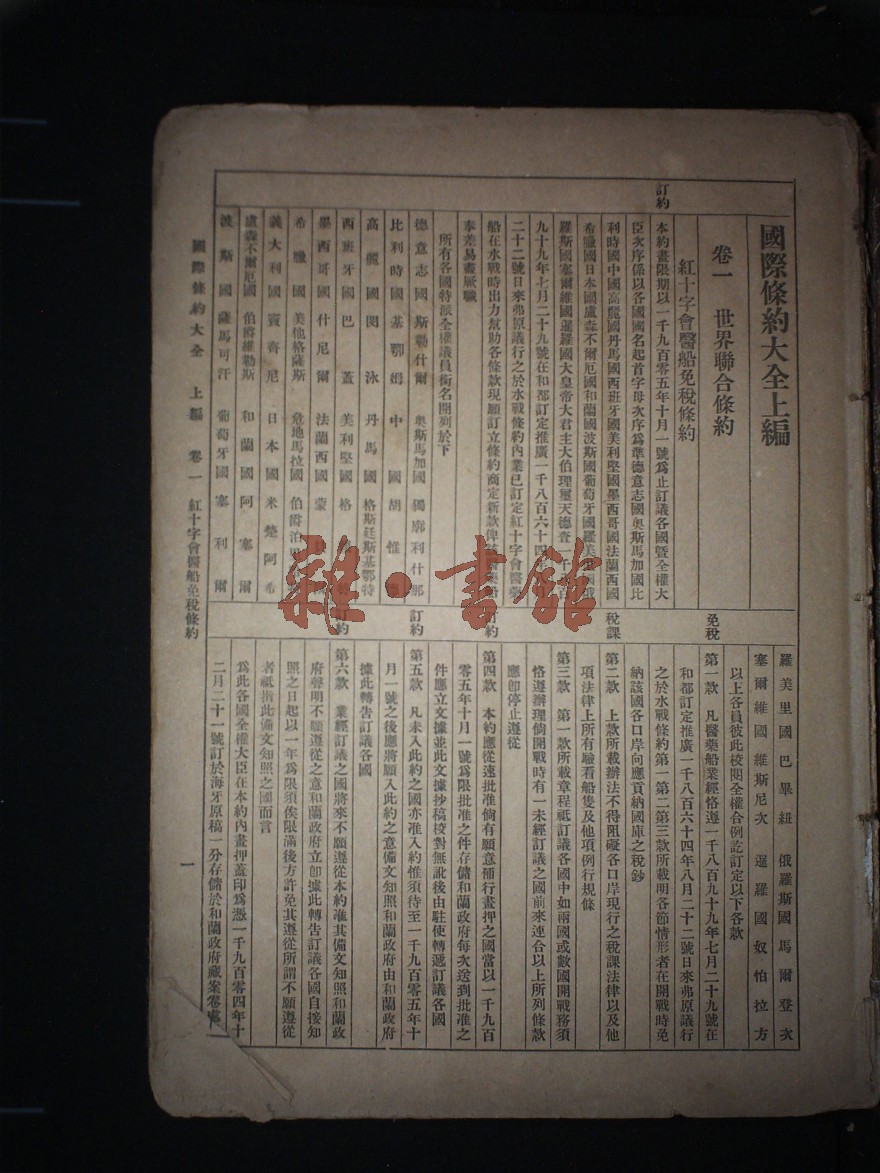 國際條約大全上編
卷一 世界聯合條約
紅十字會醫船免稅條約
訂約
本約畫限期以一千九百零五年十月一號爲止訂議各國暨全權大
臣次序係以各國國名起首字母次序爲準德意志國奧斯馬加國比
利時國中國高麗國丹馬國西班牙國美利堅國墨西哥國法蘭西國
希臘國日本國盧森不爾厄國和蘭國波斯國葡萄牙國羅美
羅斯國塞爾維國暹羅國大皇帝大君主大伯理璽天德查一千八百
九十九年七月二十九號在和都訂定推廣一千八百六十四年
二十二號日來弗原議行之於水戰條約內業已訂定紅十字會醫藥
船在水戰時出力幫助各條款現願訂立條約商定新款俾
奉差易盡厥職
所有各國特派全權議員銜名開列於下
德意志國斯勒什爾 奧斯馬加國獨廓利什那
比利時國基鄂姆 中國胡惟
高麗國閔泳 丹馬國格斯廷斯基鄂特
西班牙國巴蓋 美利堅國格
墨西哥國什尼爾 法蘭西國蒙
希臘國美他格薩斯 危地馬拉國伯爵泊
義大利國竇奇尼 日本國米楚阿希
盧森不爾厄國伯爵維勒斯 和蘭國阿塞爾
波斯國薩馬可汗 葡萄牙國塞利爾
羅美里國巴畢紐 俄羅斯國馬爾登次
塞爾維國維斯尼次 暹羅國奴怕拉方
以上各員彼此校閱全權合例訖訂定以下各款
免稅
第一款 凡醫藥船業經恪遵一千八百九十九年七月二十九號在
和都訂定推廣一千八百六十四年八月二十二號日來弗原議行
之於水戰條約第一第二第三款所載明各節情形者在開戰時免
納該國各口岸向應貢納國庫之稅鈔
稅課
第二款 上款所載辦法不得阻礙各口岸現行之稅課法律以及他
項法律上所有驗看船隻及他項例行規條
第三款 第一款所載章程祗訂議各國中如兩國或數國開戰務須
恪遵辦理倘開戰時有一未經訂議之國前來連合以上所列條款
應卽停止遵從
訂約
第四款 本約應從速批准倘有願意補行畫押之國當以一千九百
零五年十月一號爲限批准之件存儲和蘭政府每次送到批准之
件應立文據並此文據抄稿校對無訛後由駐使轉遞訂議各國
訂約
第五款 凡未入此約之國亦准入約惟須待至一千九百零五年十
月一號之後應將願入此約之意備文知照和蘭政府由和蘭政府
據此轉告訂議各國
訂約
第六款 業經訂議之國將來不願遵從本約准其備文知照和蘭政
府聲明不願遵從之意和蘭政府立卽據此轉告訂議各國自接知
照之日起以一年爲限須俟限滿後方許免其遵從所謂不願遵從
者祗指此備文知照之國而言
爲此各國全權大臣在本約內畫押蓋印爲憑一千九百零四年十
二月二十一號訂於海牙原稿一分存儲於和蘭政府藏案
國際條約大全 上編 卷一 紅十字會醫船免稅條約
一
雜·書館